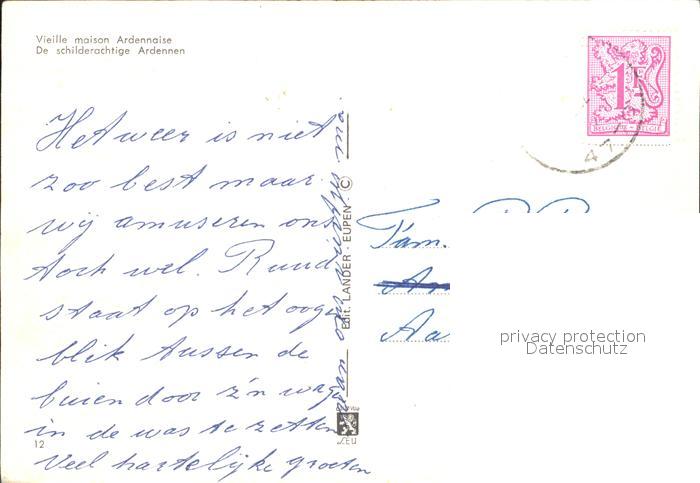 Vieille maison Ardennaise
De schilderachtige Ardennen
1F
BELGIQUE - BELGIË
47
Het weer is niet
zoo best maar
wij amuseren ons
toch wel. Ruud
staat op het oogen
blik tussen de
buien door z'n wagen
in de was te zetten
Veel hartelijke groeten
van ons
Edit. LANDER - EUPEN ©
Fam.
Aa
12
LEU
privacy protection
Datenschutz